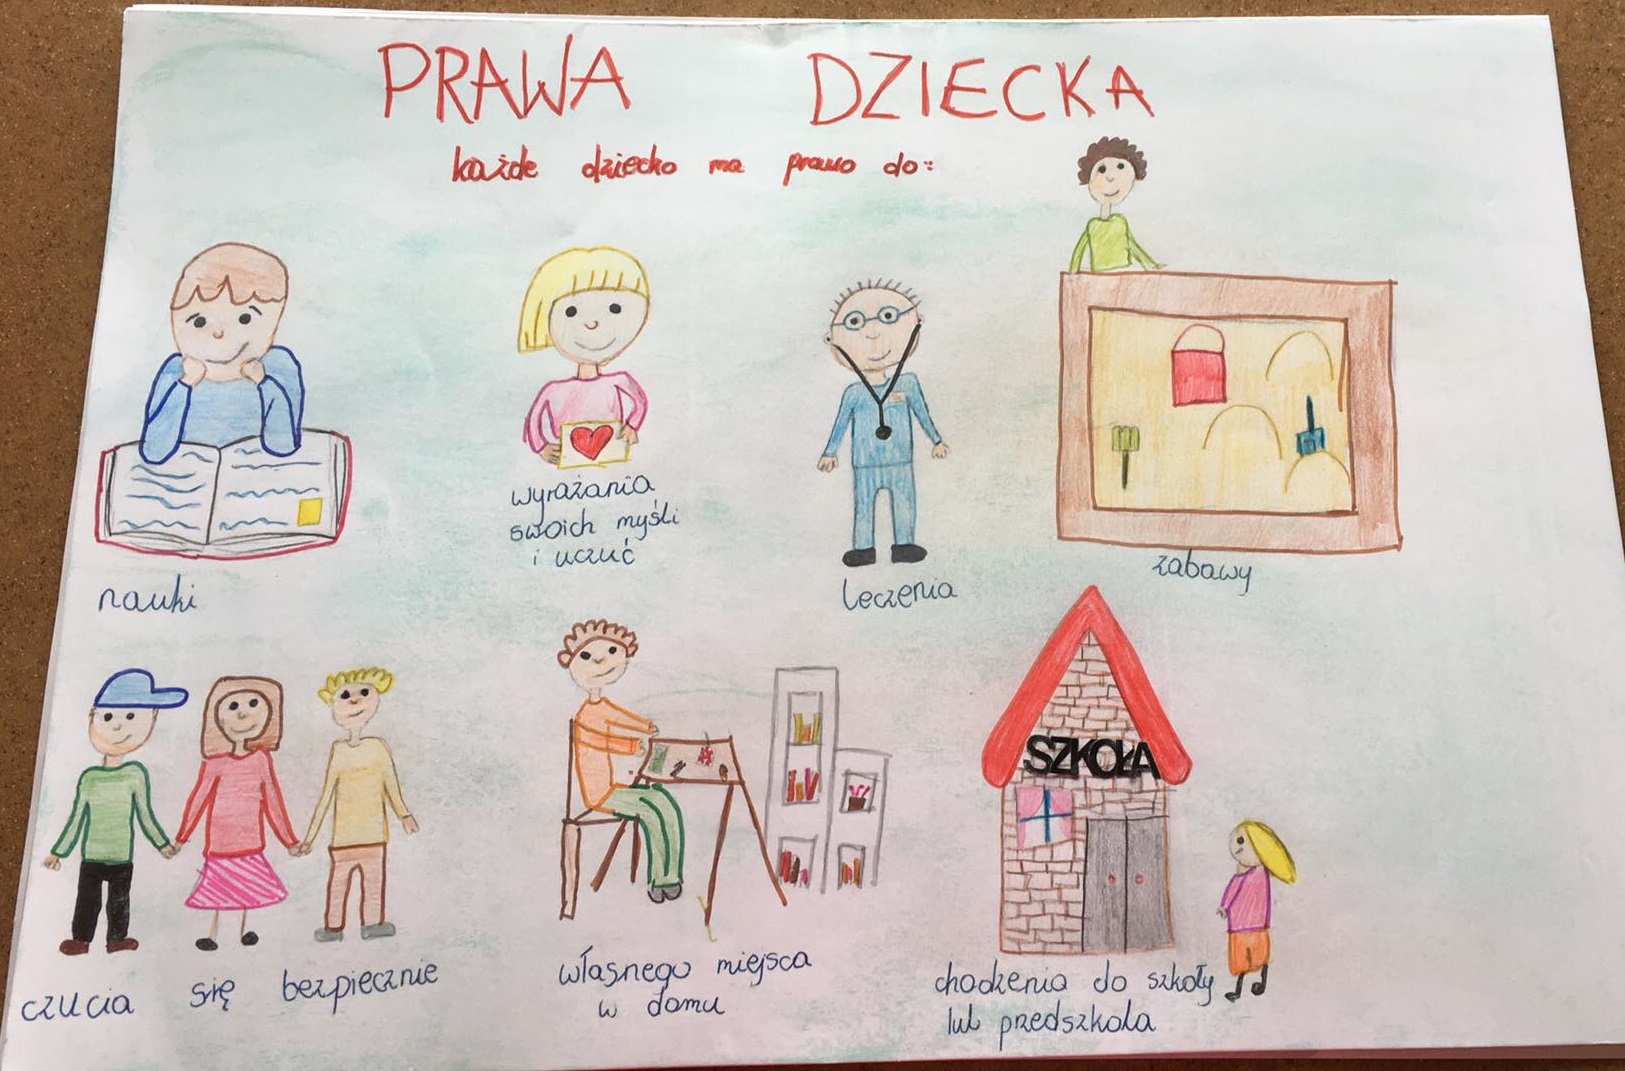 PRAWA DZIECKA
każde dziecko ma prawo do:
nauki
wyrażania
swoich myśli
i uczuć
leczenia
zabawy
czucia się bezpiecznie
własnego miejsca
w domu
SZKOŁA
chodzenia do szkoły
lub przedszkola